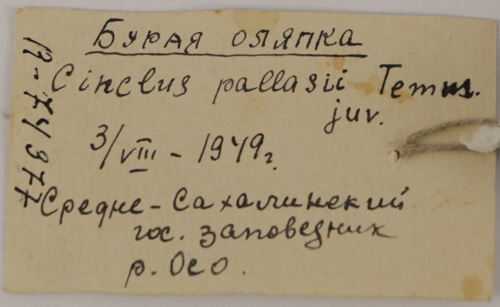 Бурая оляпка
Cinclus pallasii Temm.
juv.
3/VIII - 1949г.
Средне-Сахалинский
гос. заповедник
р. Осо.
19-74977